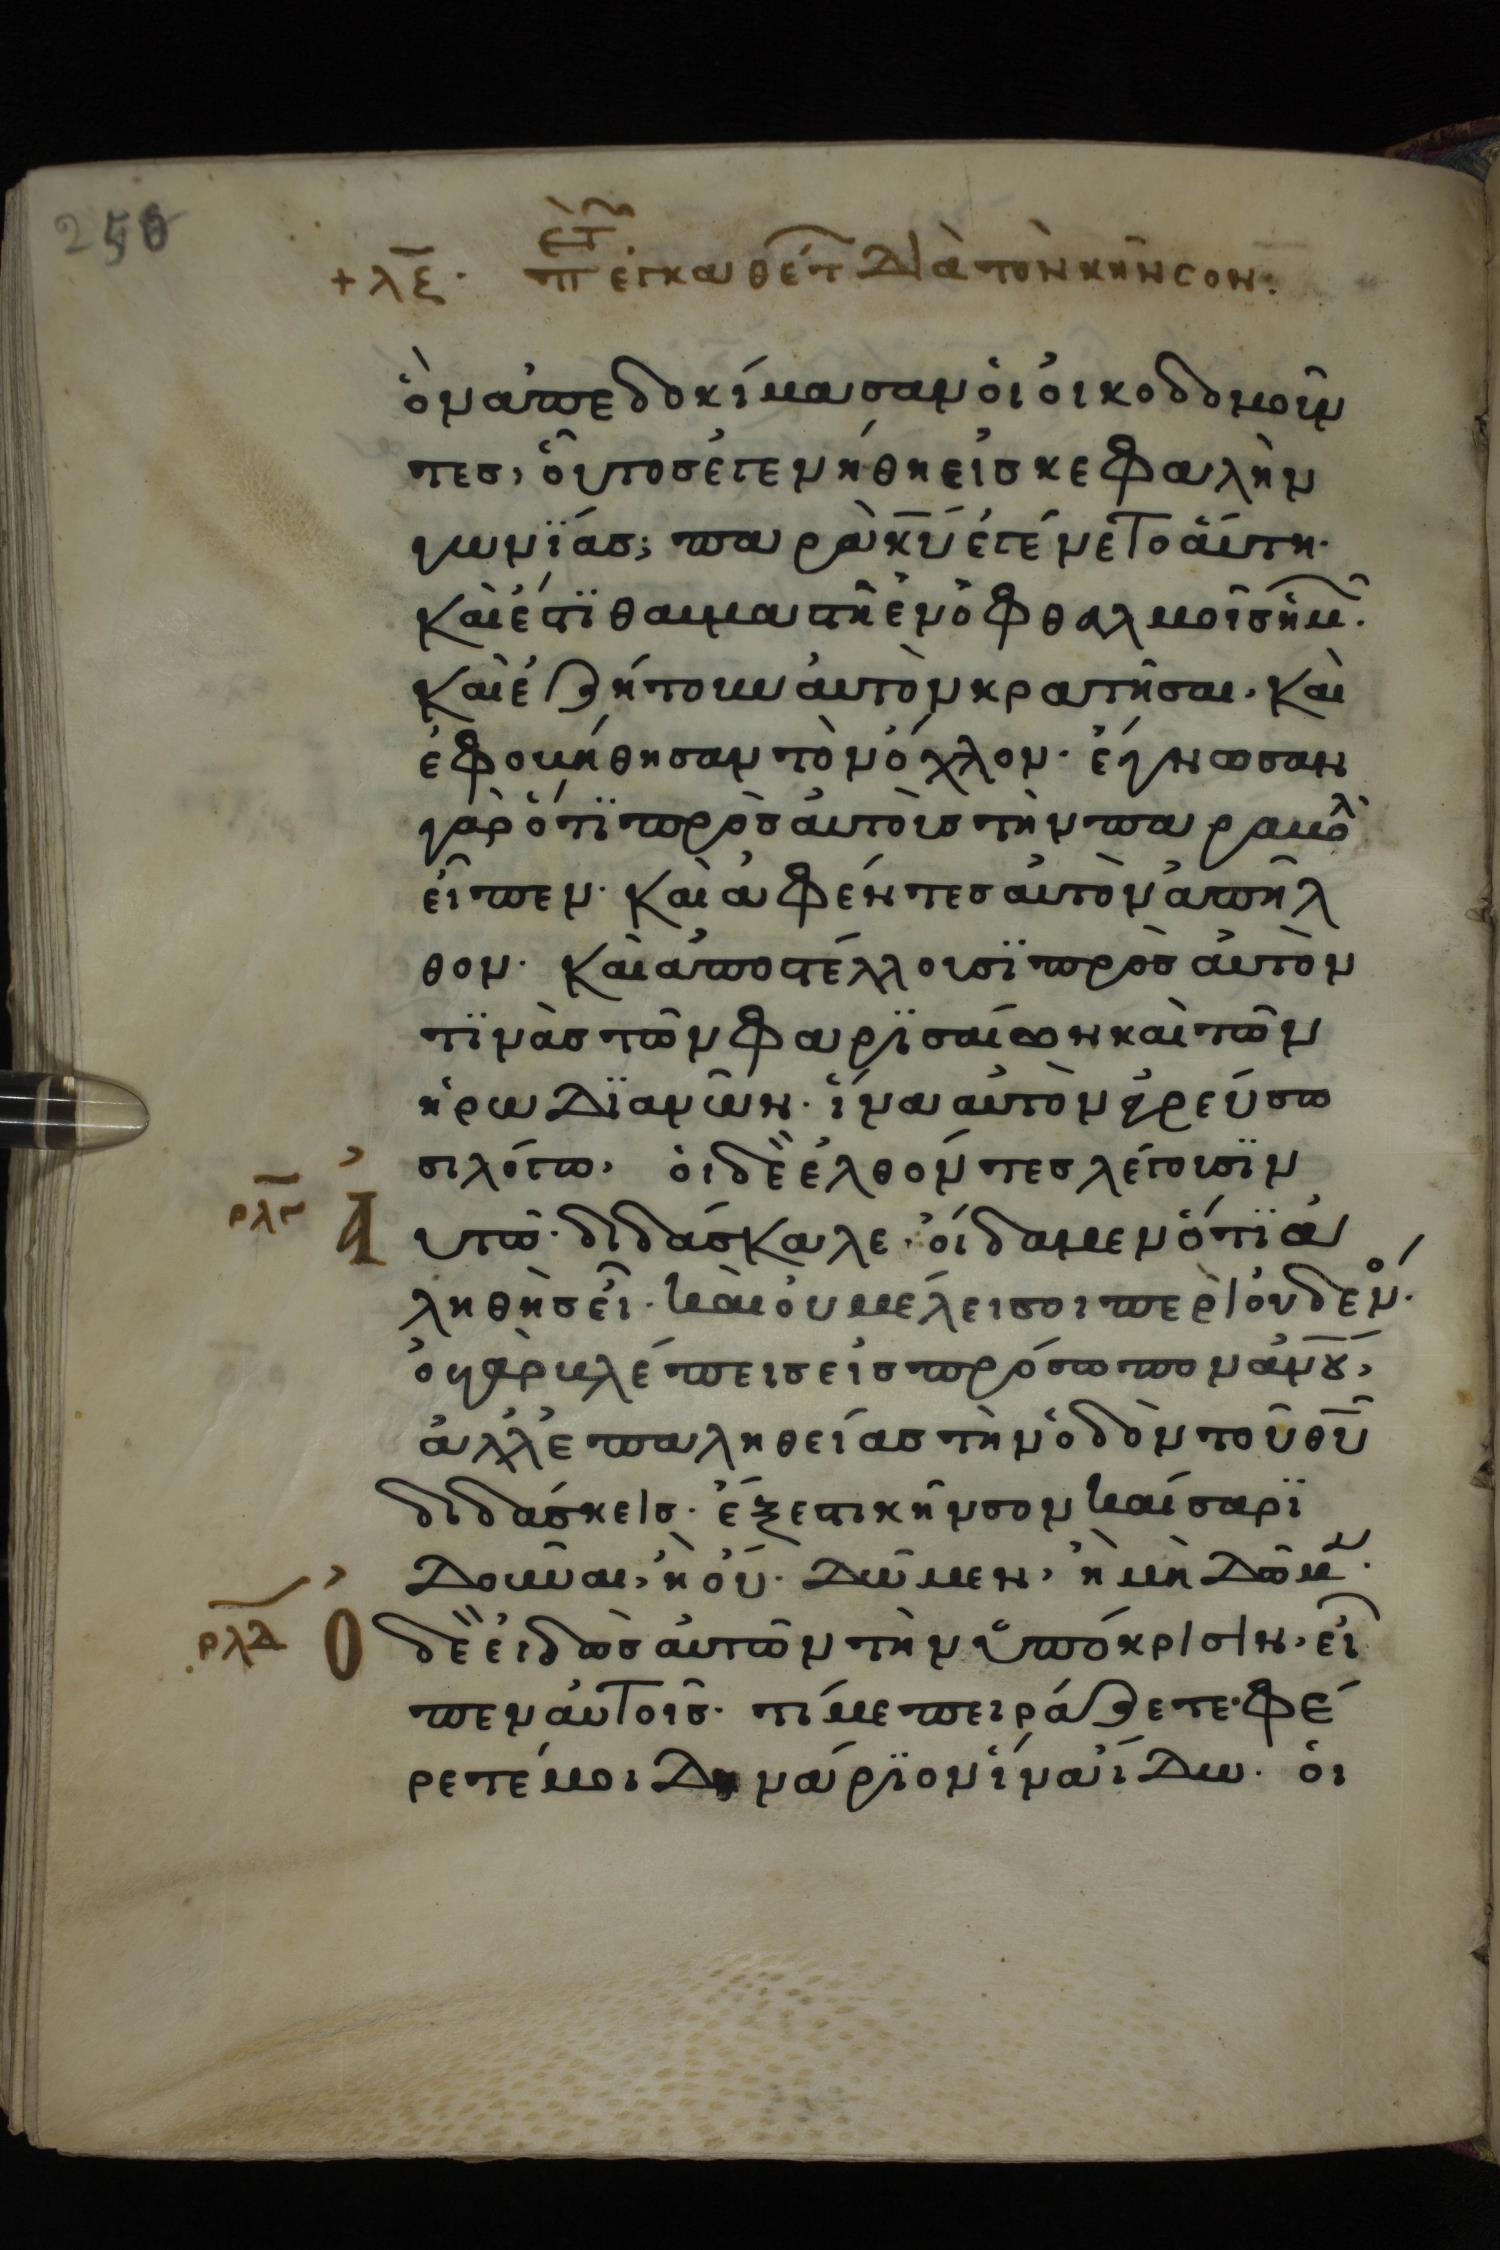 250
+ λξ. π ἐγκαθέτ διὰ τὸν κῆνσον:
ὃν ἀπεδοκίμασαν ὁι ὀικοδομοῦν
τες, ὅυτος ἐγενήθη εἰς κεφαλὴν
γωνΐας; παρὰ κ̅υ̅ ἐγένετο ἅυτη.
καὶ ἔστϊ θαυμαστὴ ἐν ὀφθαλμοῖς ἡμ.
καὶ ἐζήτουν ἀυτὸν κρατῆσαι, καὶ
ἐφοβήθησαν τὸν ὄχλον. ἔγνωσαν
γὰρ ὅτϊ πρὸς ἀυτοὺς τὴν παραβολ
εἶπεν. καὶ ἀφέντες ἀυτὸν ἀπῆλ
θον. καὶ ἀποστέλλουσϊ πρὸς ἀυτὸν
τϊνὰς τῶν φαρϊσαίων καὶ τῶν
ἡρωδϊανῶν. ἵνα ἀυτὸν ἀγρεύσω
σι λόγω, ὁι δὲ ἐλθόντες λέγουσϊν
ρλγ Ἀυτῶ. διδάσκαλε. ὄιδαμεν ὅτϊ ἀ
ληθὴς εἶ. καὶ ὀυ μέλει σοι περὶ ὀυδενό.
ὀυ γὰρ βλέπεις εἰς πρόσωπον α̅ν̅ου̅,
ἀλλ' ἐπ' ἀληθείας τὴν ὁδὸν τοῦ θ̅υ̅
διδάσκεις. ἔξεστι κῆνσον καίσαρϊ
δοῦναι, ἢ ὄυ. δῶμεν, ἢ μὴ δῶμεν.
ρλδ Ὁ δὲ ἐιδὼς ἀυτῶν τὴν ὑπόκρισιν, εἶ
πεν ἀυτοῖς. τί με πειράζετε. φέ
ρετέ μοι δηνάρϊον ἵνα ἴδω. ὁι